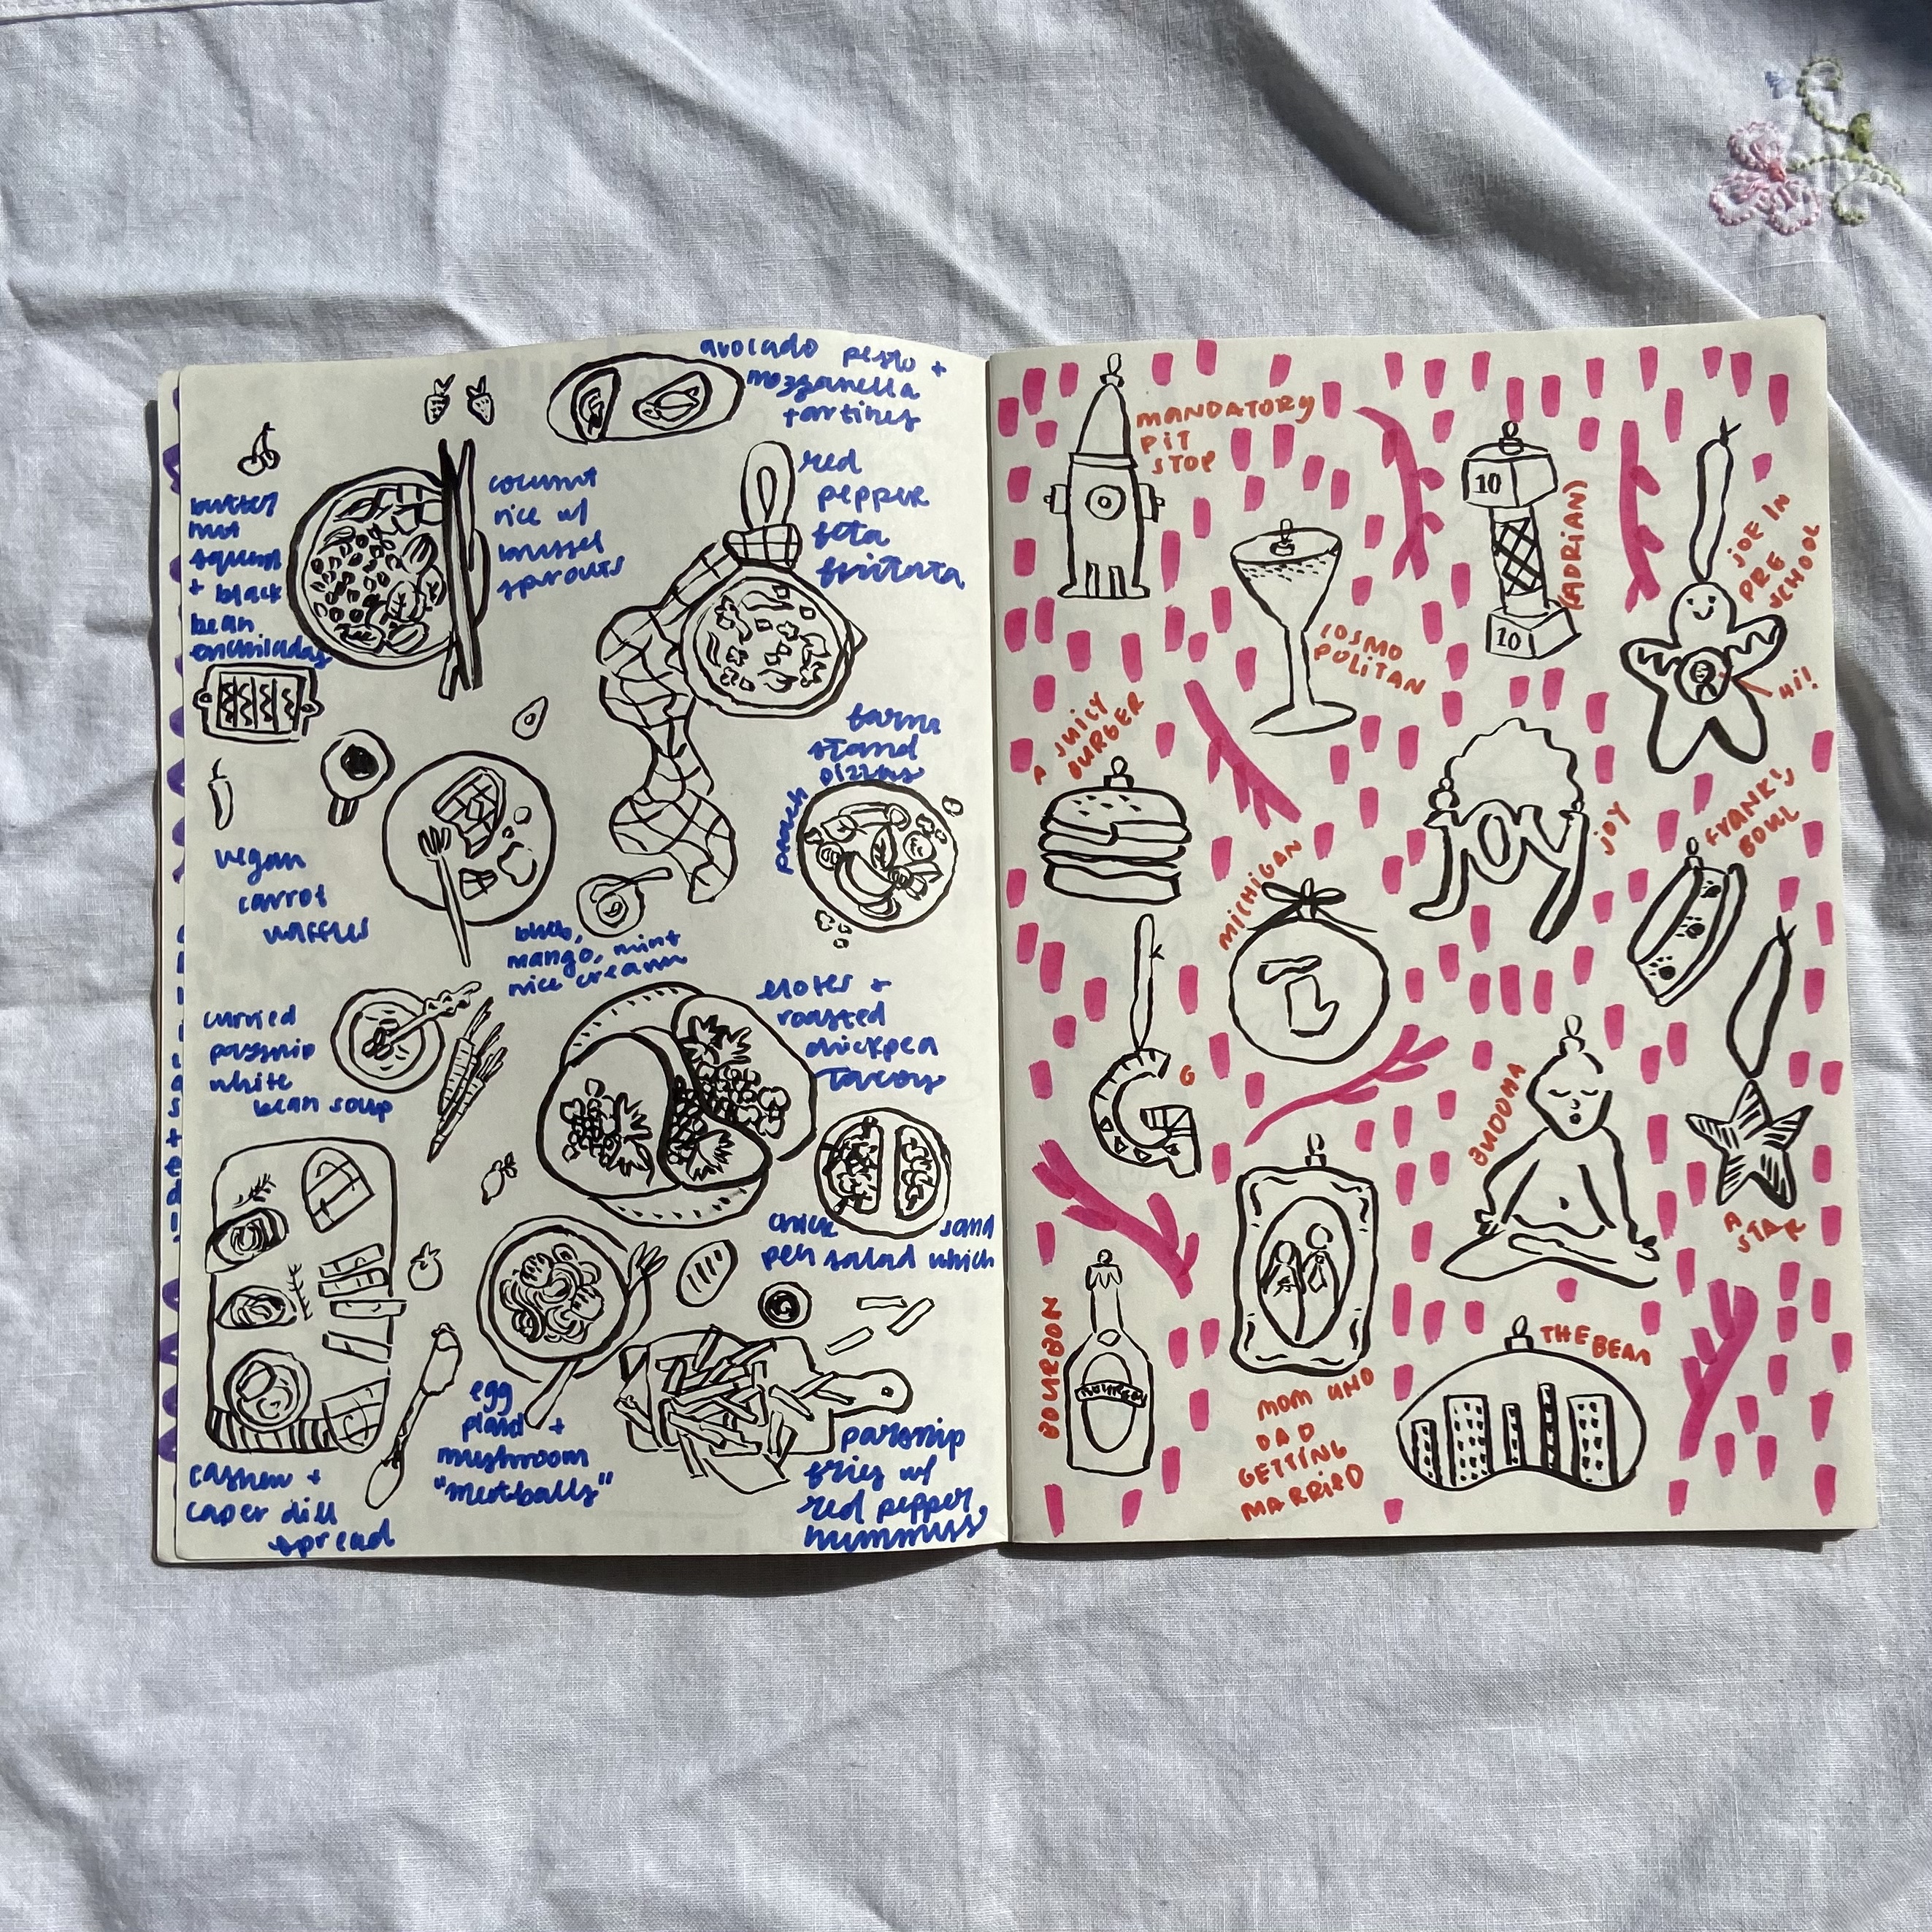 avocado pesto +
mozzarella
tartines
butter
nut
squash
+ black
bean
enchiladas
coconut
rice w/
brussel
sprouts
red
pepper
feta
frittata
farm
stand
pizzas
peach
vegan
carrot
waffles
mango, mint
nice cream
curried
parsnip
white
bean soup
elotes +
roasted
chickpea
tacos
chick
pea salad
sand
which
cashew +
caper dill
spread
egg
plant +
mushroom
"meatballs"
parsnip
fries w/
red pepper
hummus
MANDATORY
PIT
STOP
COSMO
POLITAN
10
10
(ADRIAN)
JOE IN
PRE
SCHOOL
HI!
A JUICY
BURGER
MICHIGAN
JOY
JOY
FRANK'S
BOWL
G
G
BUDDHA
A
STAR
BOURBON
BOURBON
MOM AND
DAD
GETTING
MARRIED
THE BEAN